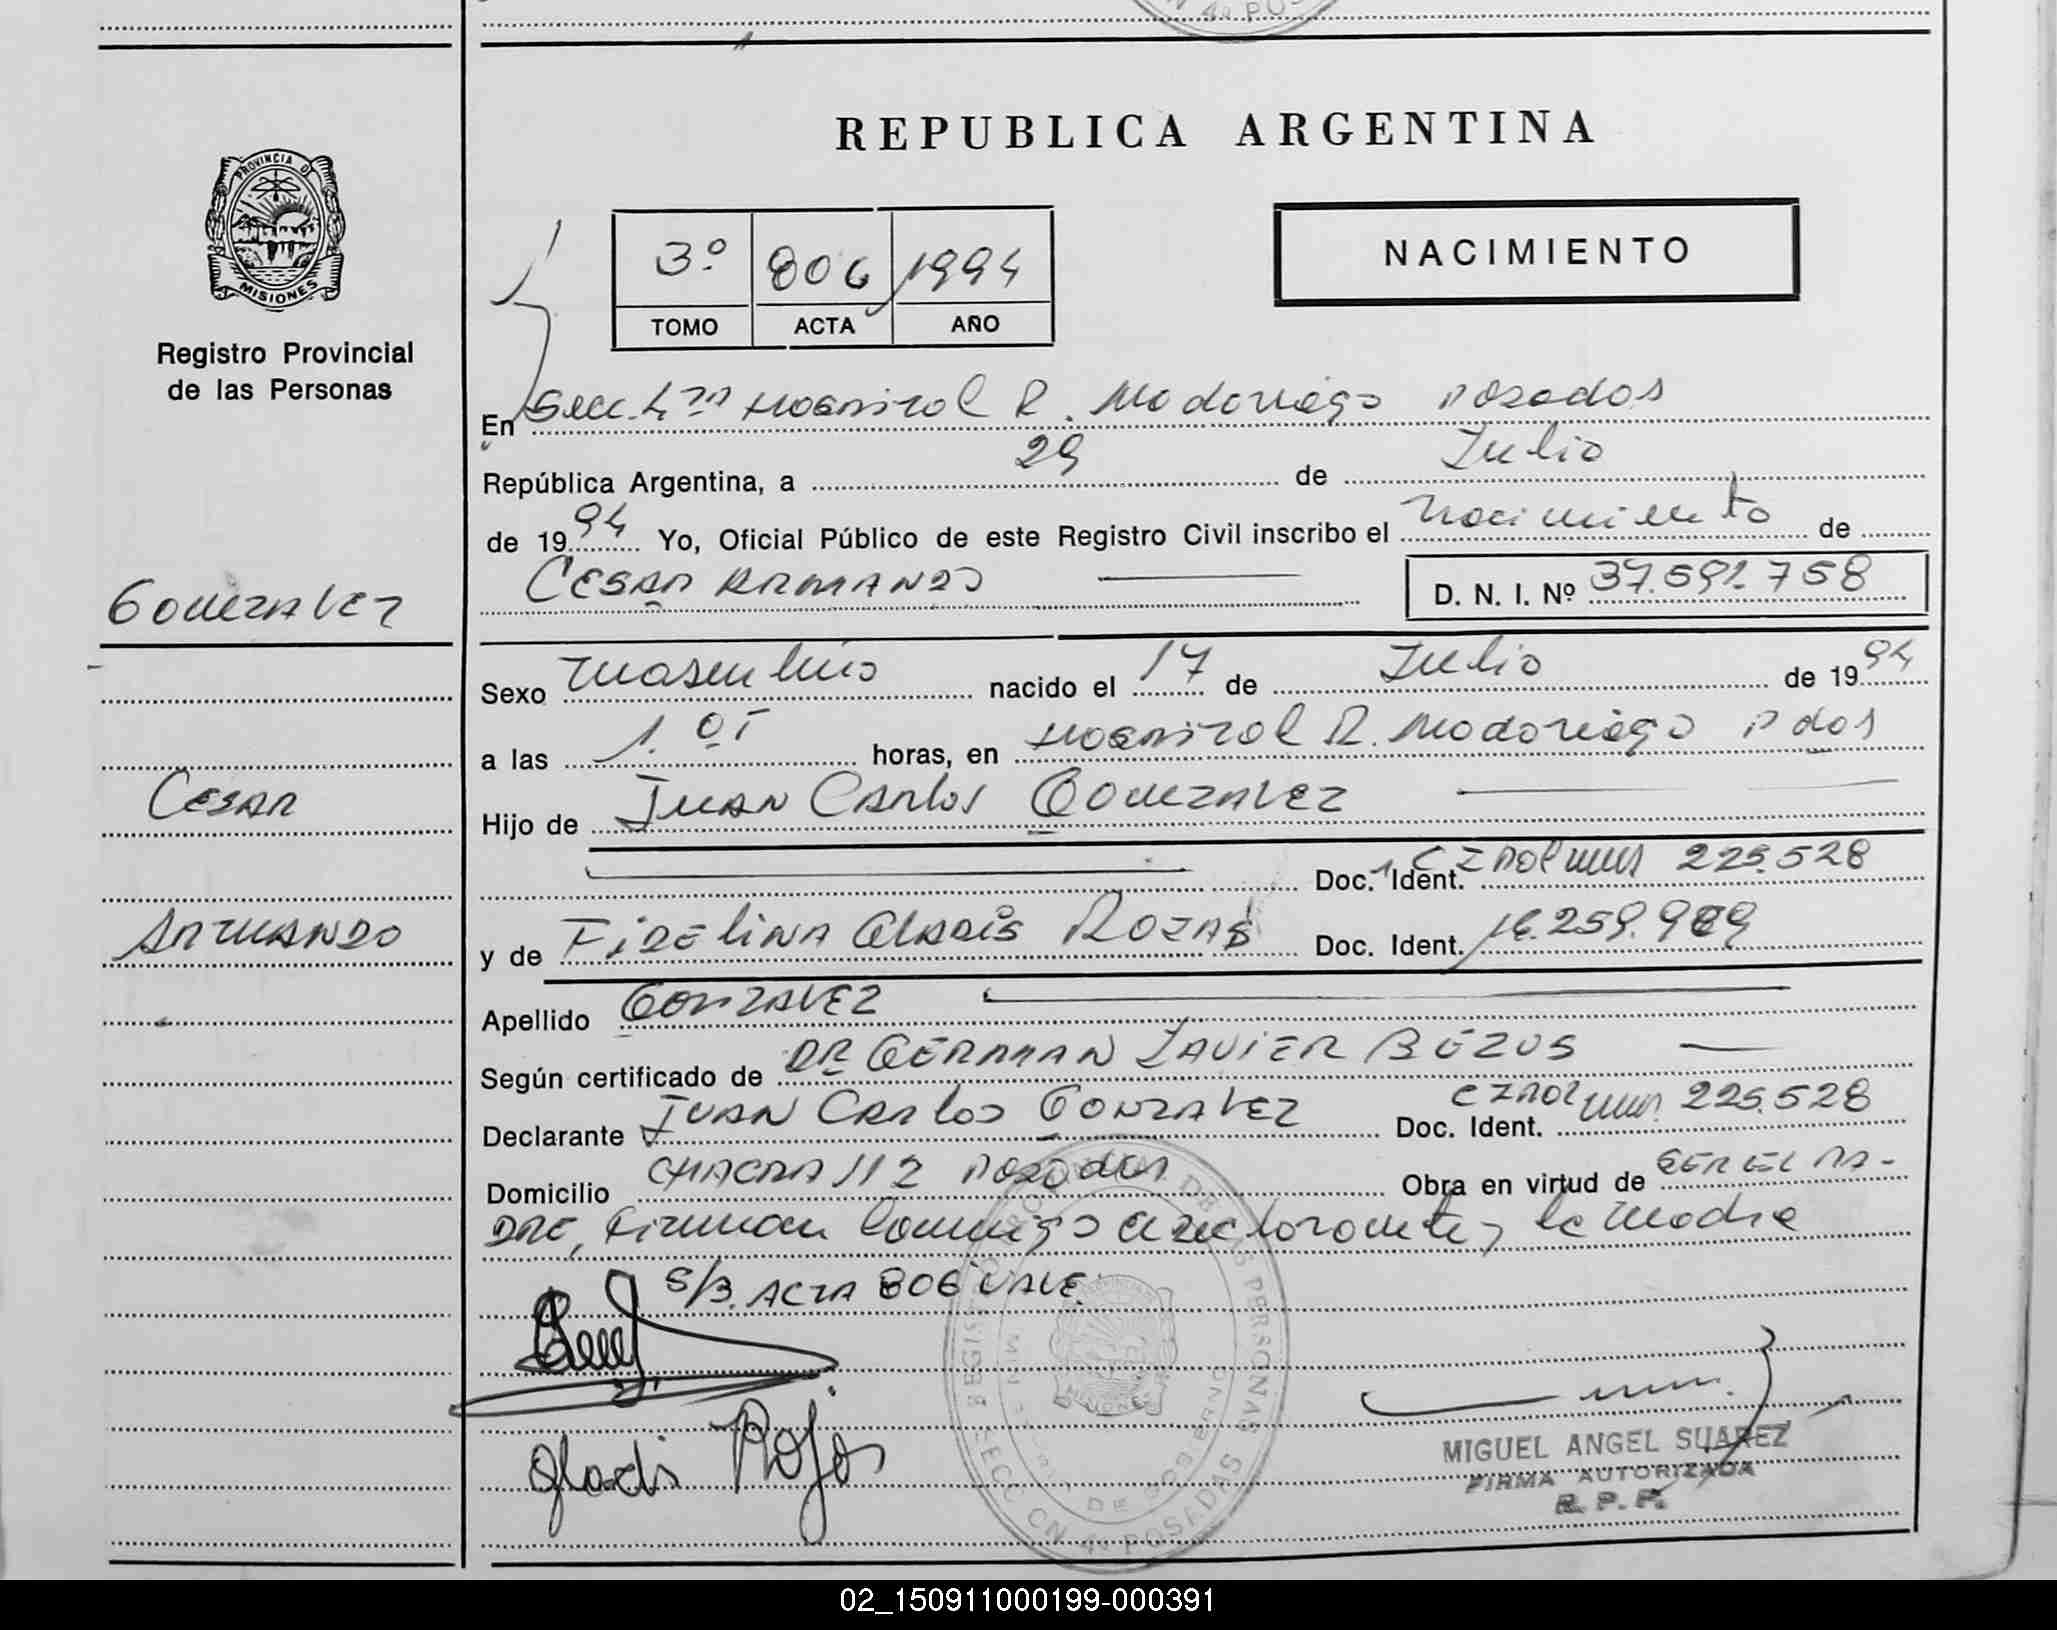 REPUBLICA ARGENTINA
PROVINCIA DE
MISIONES
Registro Provincial
de las Personas
3º 806 1994
TOMO ACTA AÑO
NACIMIENTO
En Secc. 4ta Hospital R. Madariaga Posadas
República Argentina, a 29 de Julio
de 1994 Yo, Oficial Público de este Registro Civil inscribo el nacimiento de
CESAR ARMANDO
D. N. I. Nº 37.591.758
Gonzalez
Cesar
Armando
Sexo masculino nacido el 17 de Julio de 1994
a las 1.05 horas, en Hospital R. Madariaga Pdas
Hijo de Juan Carlos Gonzalez
Doc. Ident. CI Pol Mnes 225.528
y de FIDELINA Gladis Rojas Doc. Ident. 16.259.989
Apellido GONZALEZ
Según certificado de DR GERMAN JAVIER BEZUS
Declarante JUAN Carlos GONZALEZ Doc. Ident. CI POL Mnes. 225.528
Domicilio CHACRA 112 Posadas Obra en virtud de SER EL PA-
DRE, Firman conmigo el declarante y la madre
S/B. ACTA 806 VALE.
Gladis Rojas
REGISTRO PROVINCIAL DE LAS PERSONAS
SECCION 4º POSADAS
MINISTERIO DE GOBIERNO
MISIONES
MIGUEL ANGEL SUAREZ
FIRMA AUTORIZADA
R. P. P.
02_150911000199-000391